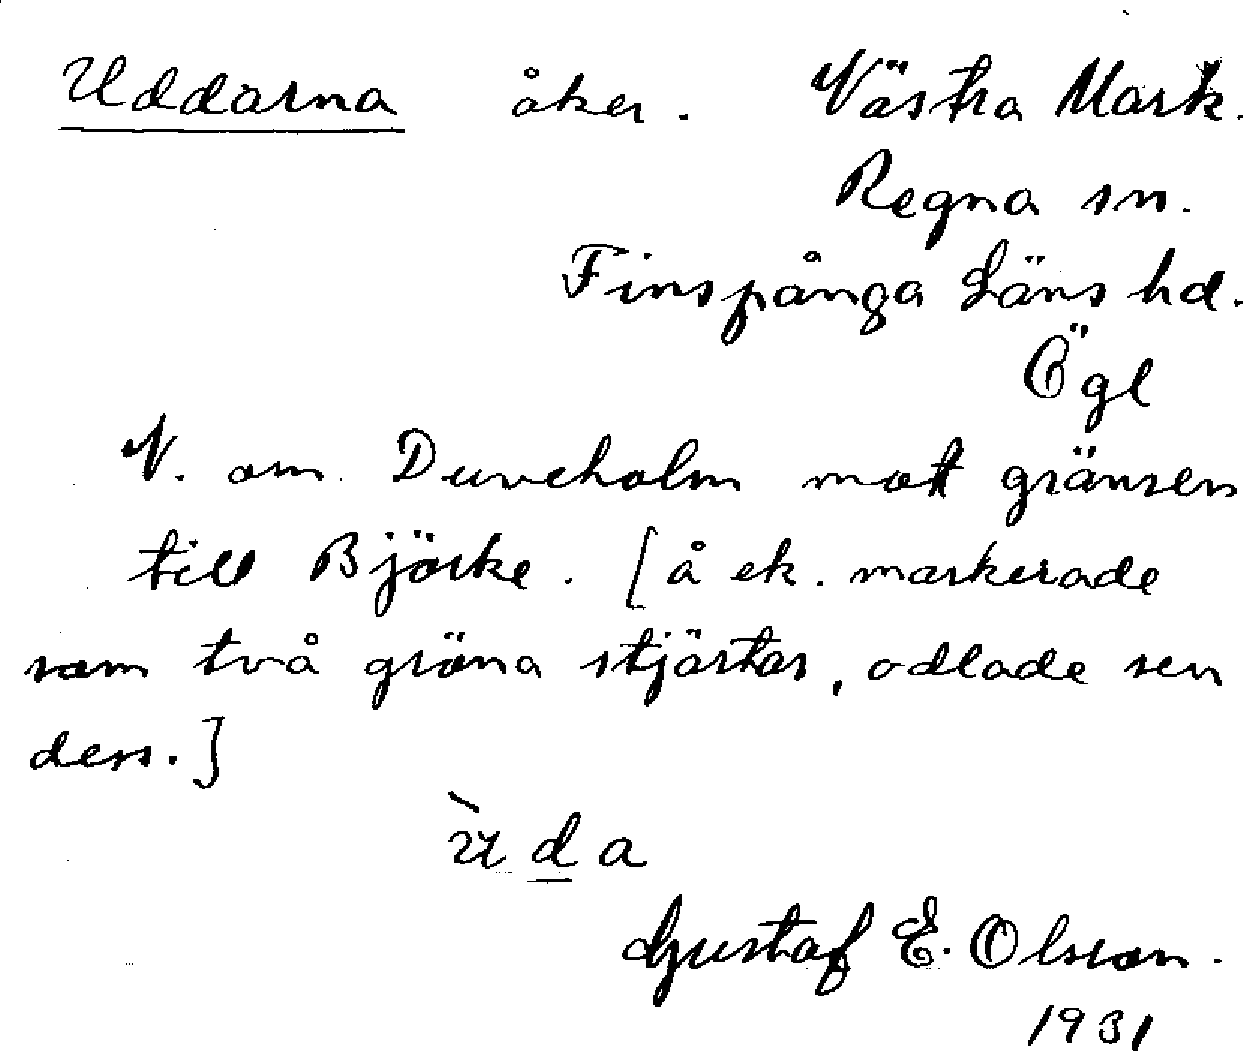 Uddarna åker. Västra Mark.
Regna sn.
Finspånga Läns hd.
Ögl
N. om Duveholm mot gränsen
till Björke. [å ek. markerade
som två gröna stjärtar, odlade sen
dess.]
ùda
Gustaf E. Olsson.
1931